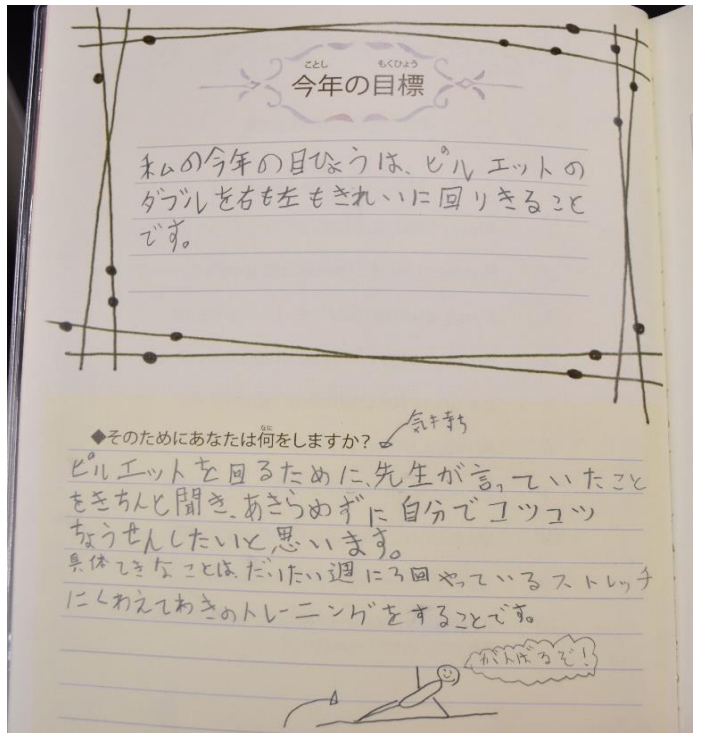 ことし もくひょう
今年の目標
私の今年の目ひょうは、ピルエットの
ダブルを右も左もきれいに回りきること
です。
なに
◆そのためにあなたは何をしますか?
気持ち
ピルエットを回るために、先生が言っていたこと
をきちんと聞き、あきらめずに自分でコツコツ
ちょうせんしたいと思います。
具体てきなことは、だいたい週に3回やっているストレッチ
にくわえてわきのトレーニングをすることです。
がんばるぞ!